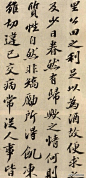 里公田之利足以為酒故便求之
及少日眷然有歸歟之情何則
質性自然非矯勵所得飢凍
雖切違己交病嘗從人事皆